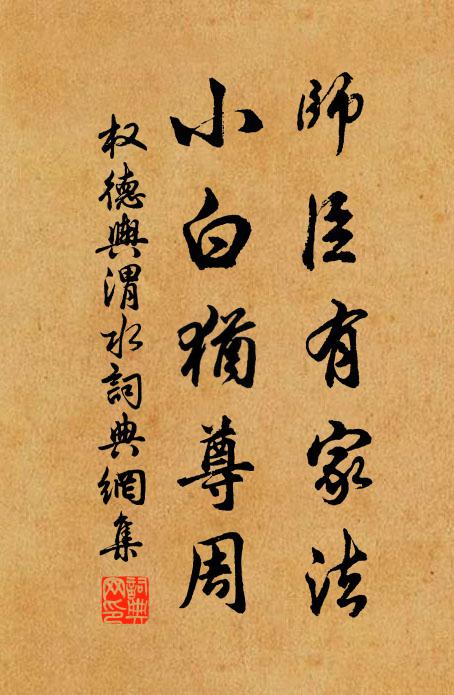 師臣有家法
小白猶尊周
权德輿渭水詞典網集
詞典网印